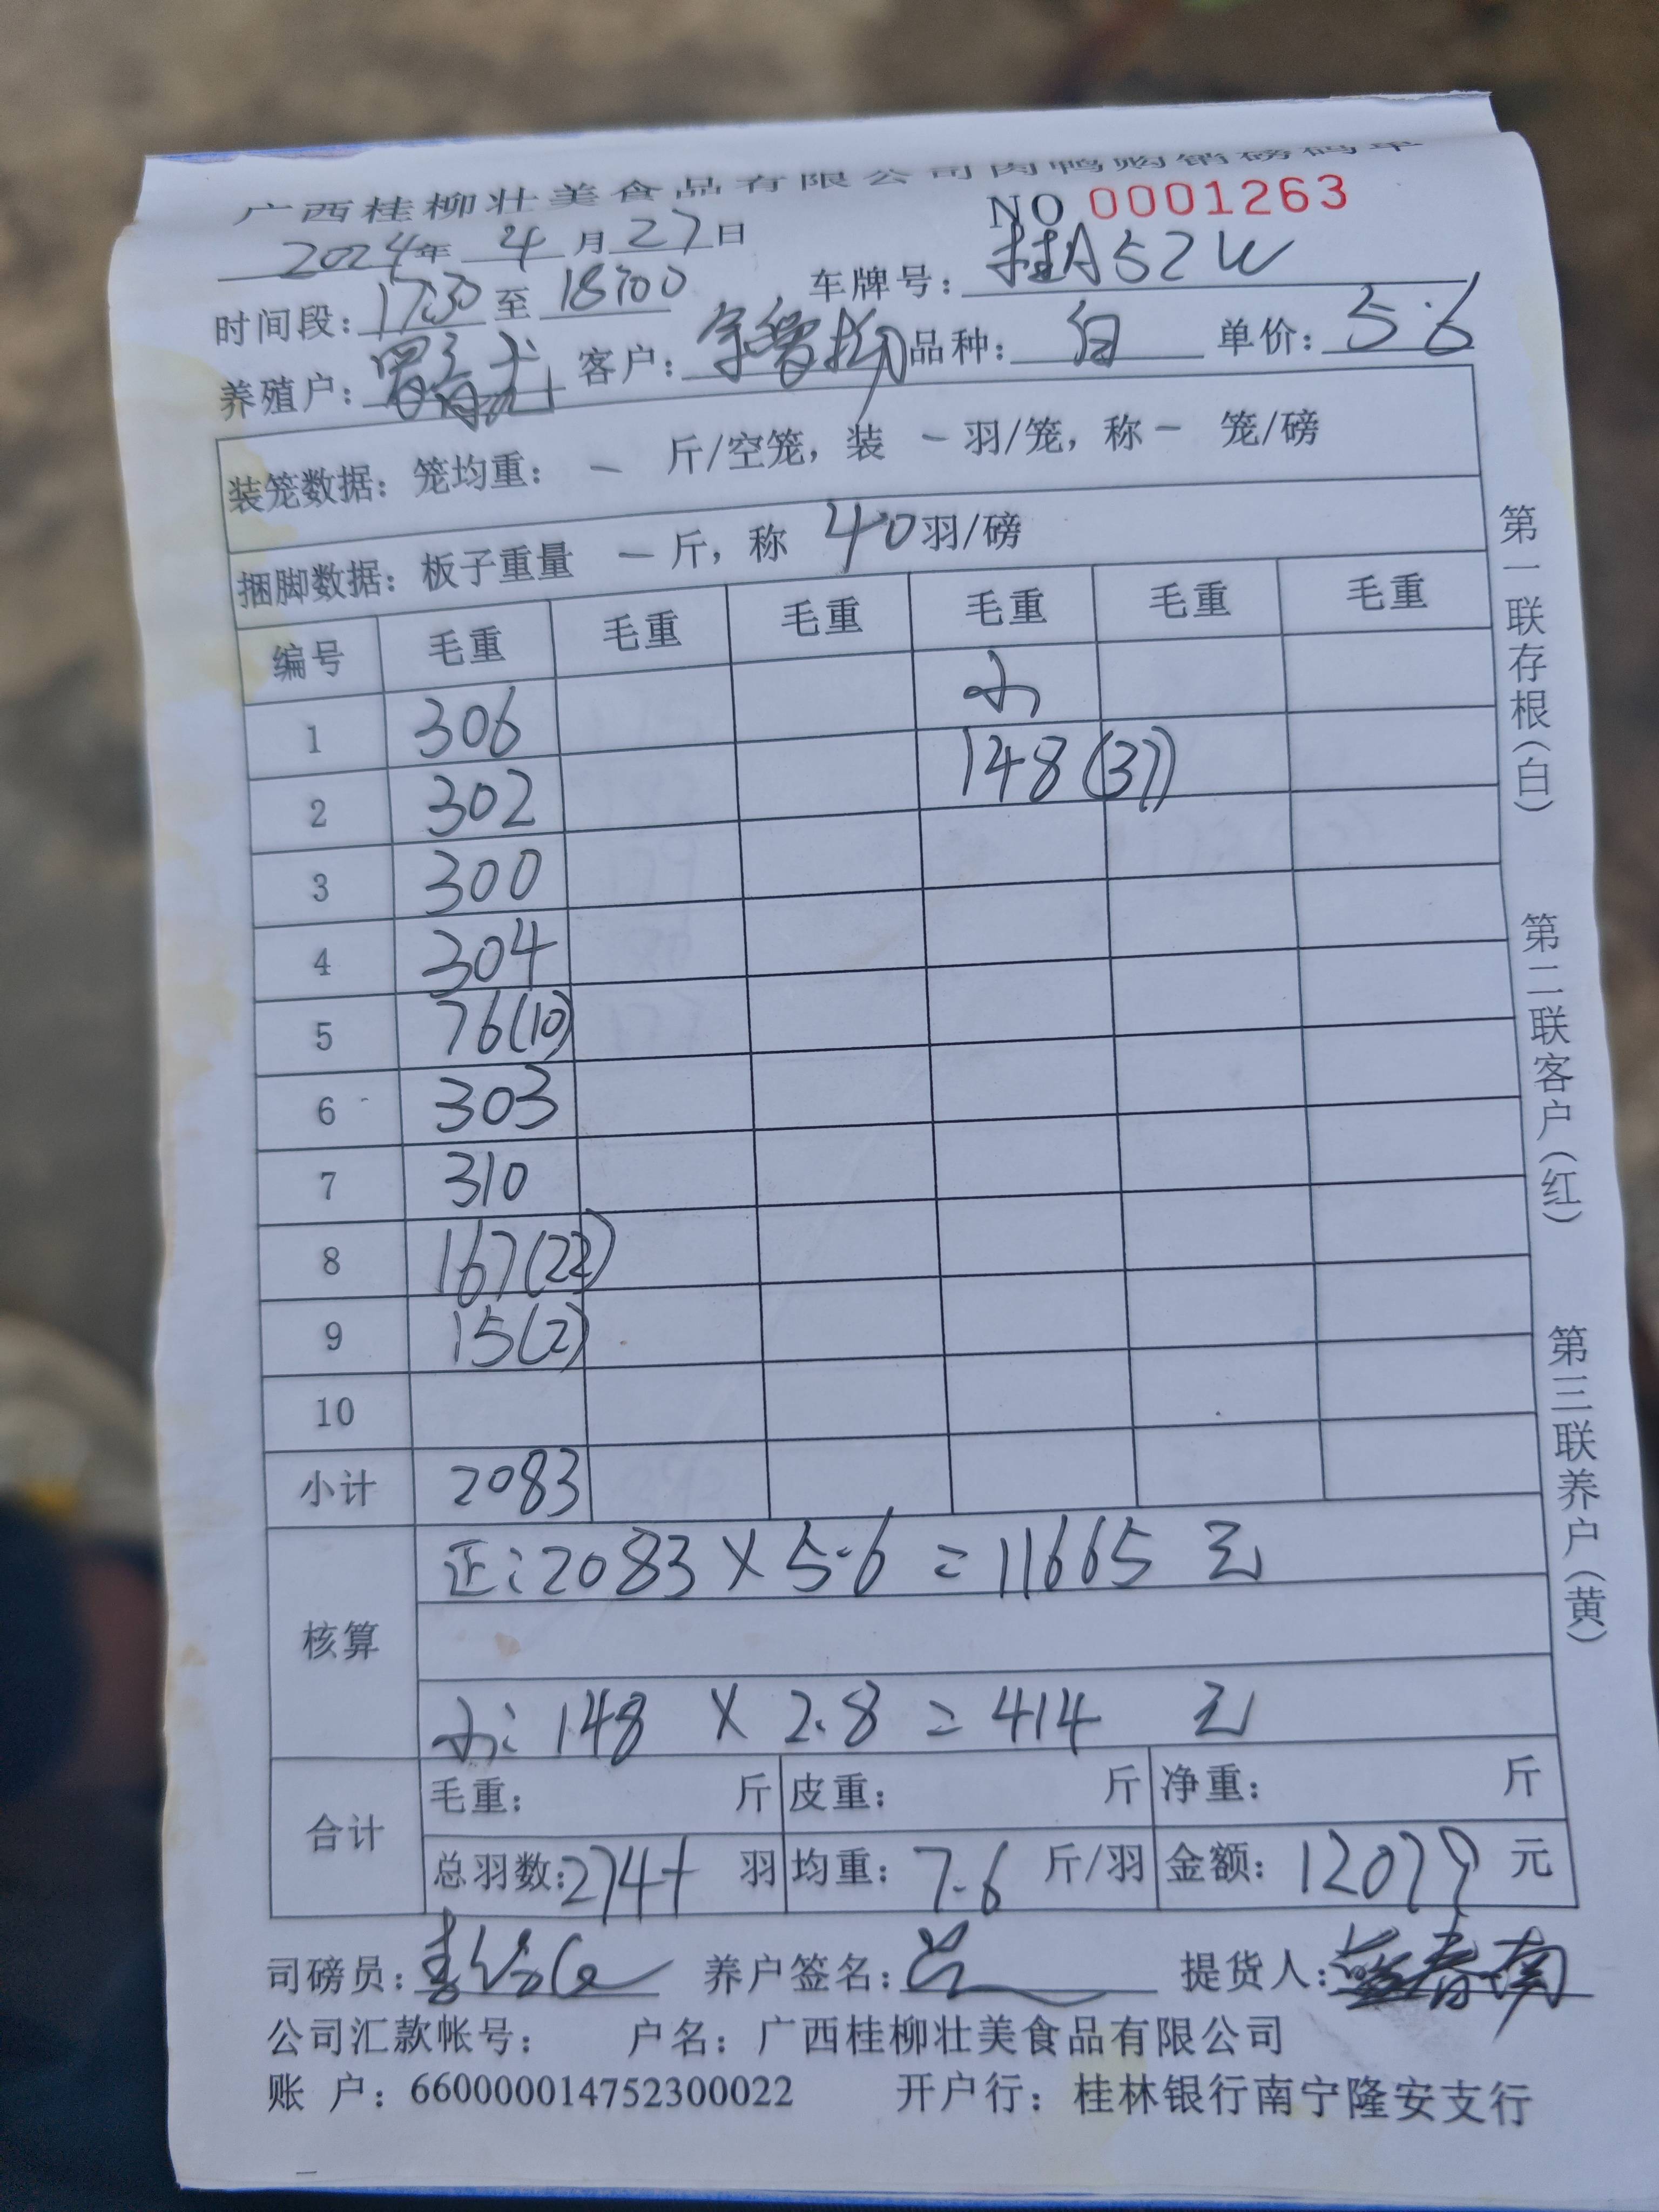 广西桂柳壮美食品有限公司肉鸭购销磅码单
NO 0001263
2024年 4月27日
时间段: 17:30 至 18:00 车牌号: 桂A52W
养殖户: 客户: 品种: 白 单价: 5.6
装笼数据: 笼均重: — 斤/空笼, 装 — 羽/笼, 称 — 笼/磅
捆脚数据: 板子重量 — 斤, 称 40羽/磅
编号 毛重 毛重 毛重 毛重 毛重 毛重
1 306 小
2 302 148(37)
3 300
4 304
5 76(10)
6 303
7 310
8 167(22)
9 15(2)
10
小计 2083
核算
正: 2083 × 5.6 = 11665 元
小: 148 × 2.8 = 414 元
合计
毛重: 斤 皮重: 斤 净重: 斤
总羽数: 274+ 羽 均重: 7.6 斤/羽 金额: 12079 元
司磅员: 养户签名: 提货人:
公司汇款帐号: 户名: 广西桂柳壮美食品有限公司
账 户: 660000014752300022 开户行: 桂林银行南宁隆安支行
第一联存根(白)
第二联客户(红)
第三联养户(黄)